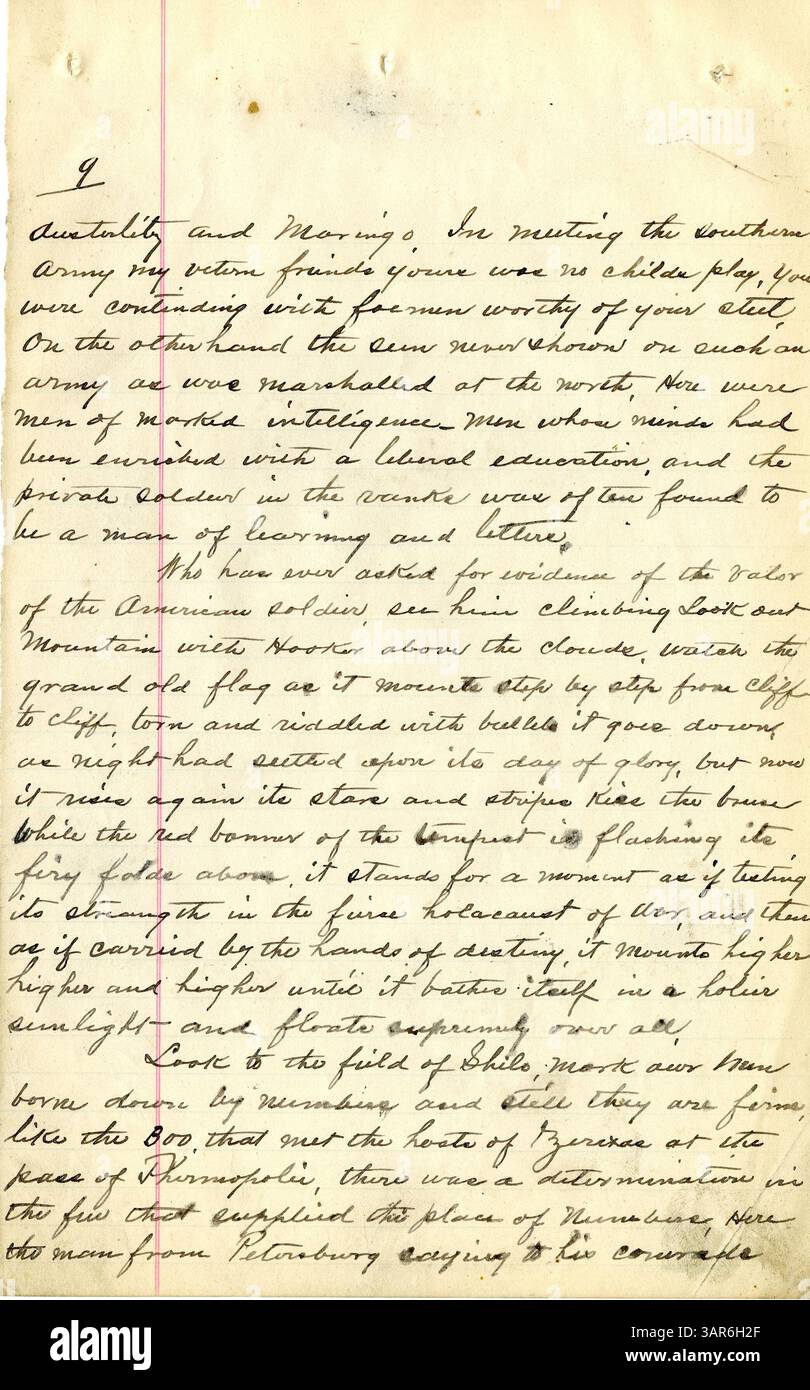 9
Austerlity and Maringo. In meeting the southern
Army my vetern friends yours was no childs play, you
were contending with foemen worthy of your steel,
On the other hand the sun never shown on such an
army as was marshalled at the north, Here were
men of marked intelligence – Men whose minds had
been enriched with a liberal education, and the
private soldier in the ranks was often found to
be a man of learning and letters.
Who has ever asked for evidence of the valor
of the American soldier, see him climbing Look out
Mountain with Hooker above the clouds, watch the
grand old flag as it mounts step by step from cliff
to cliff, torn and riddled with bullets it goes down,
as night had settled upon its day of glory, but now
it rises again its stars and stripes kiss the
While the red banner of the tempest is flashing its
firy folds above, it stands for a moment as if testing
its strength in the fierse holacaust of War, and then
as if carried by the hands of destiny, it mounts higher
higher and higher until it bathes itself in a holier
sunlight and floats supremely over all,
Look to the field of Shilo, mark our Men
born down by numbers and still they are firm,
like the 300 that met the hosts of at the
pass of Thermopolie, there was a determination in
the few that supplied the place of Numbers, Here
the man from Petersburg saying to his comrade
alamy
alamy
alamy
a
a
a
alamy
Image ID: 3AR6H2F
www.alamy.com